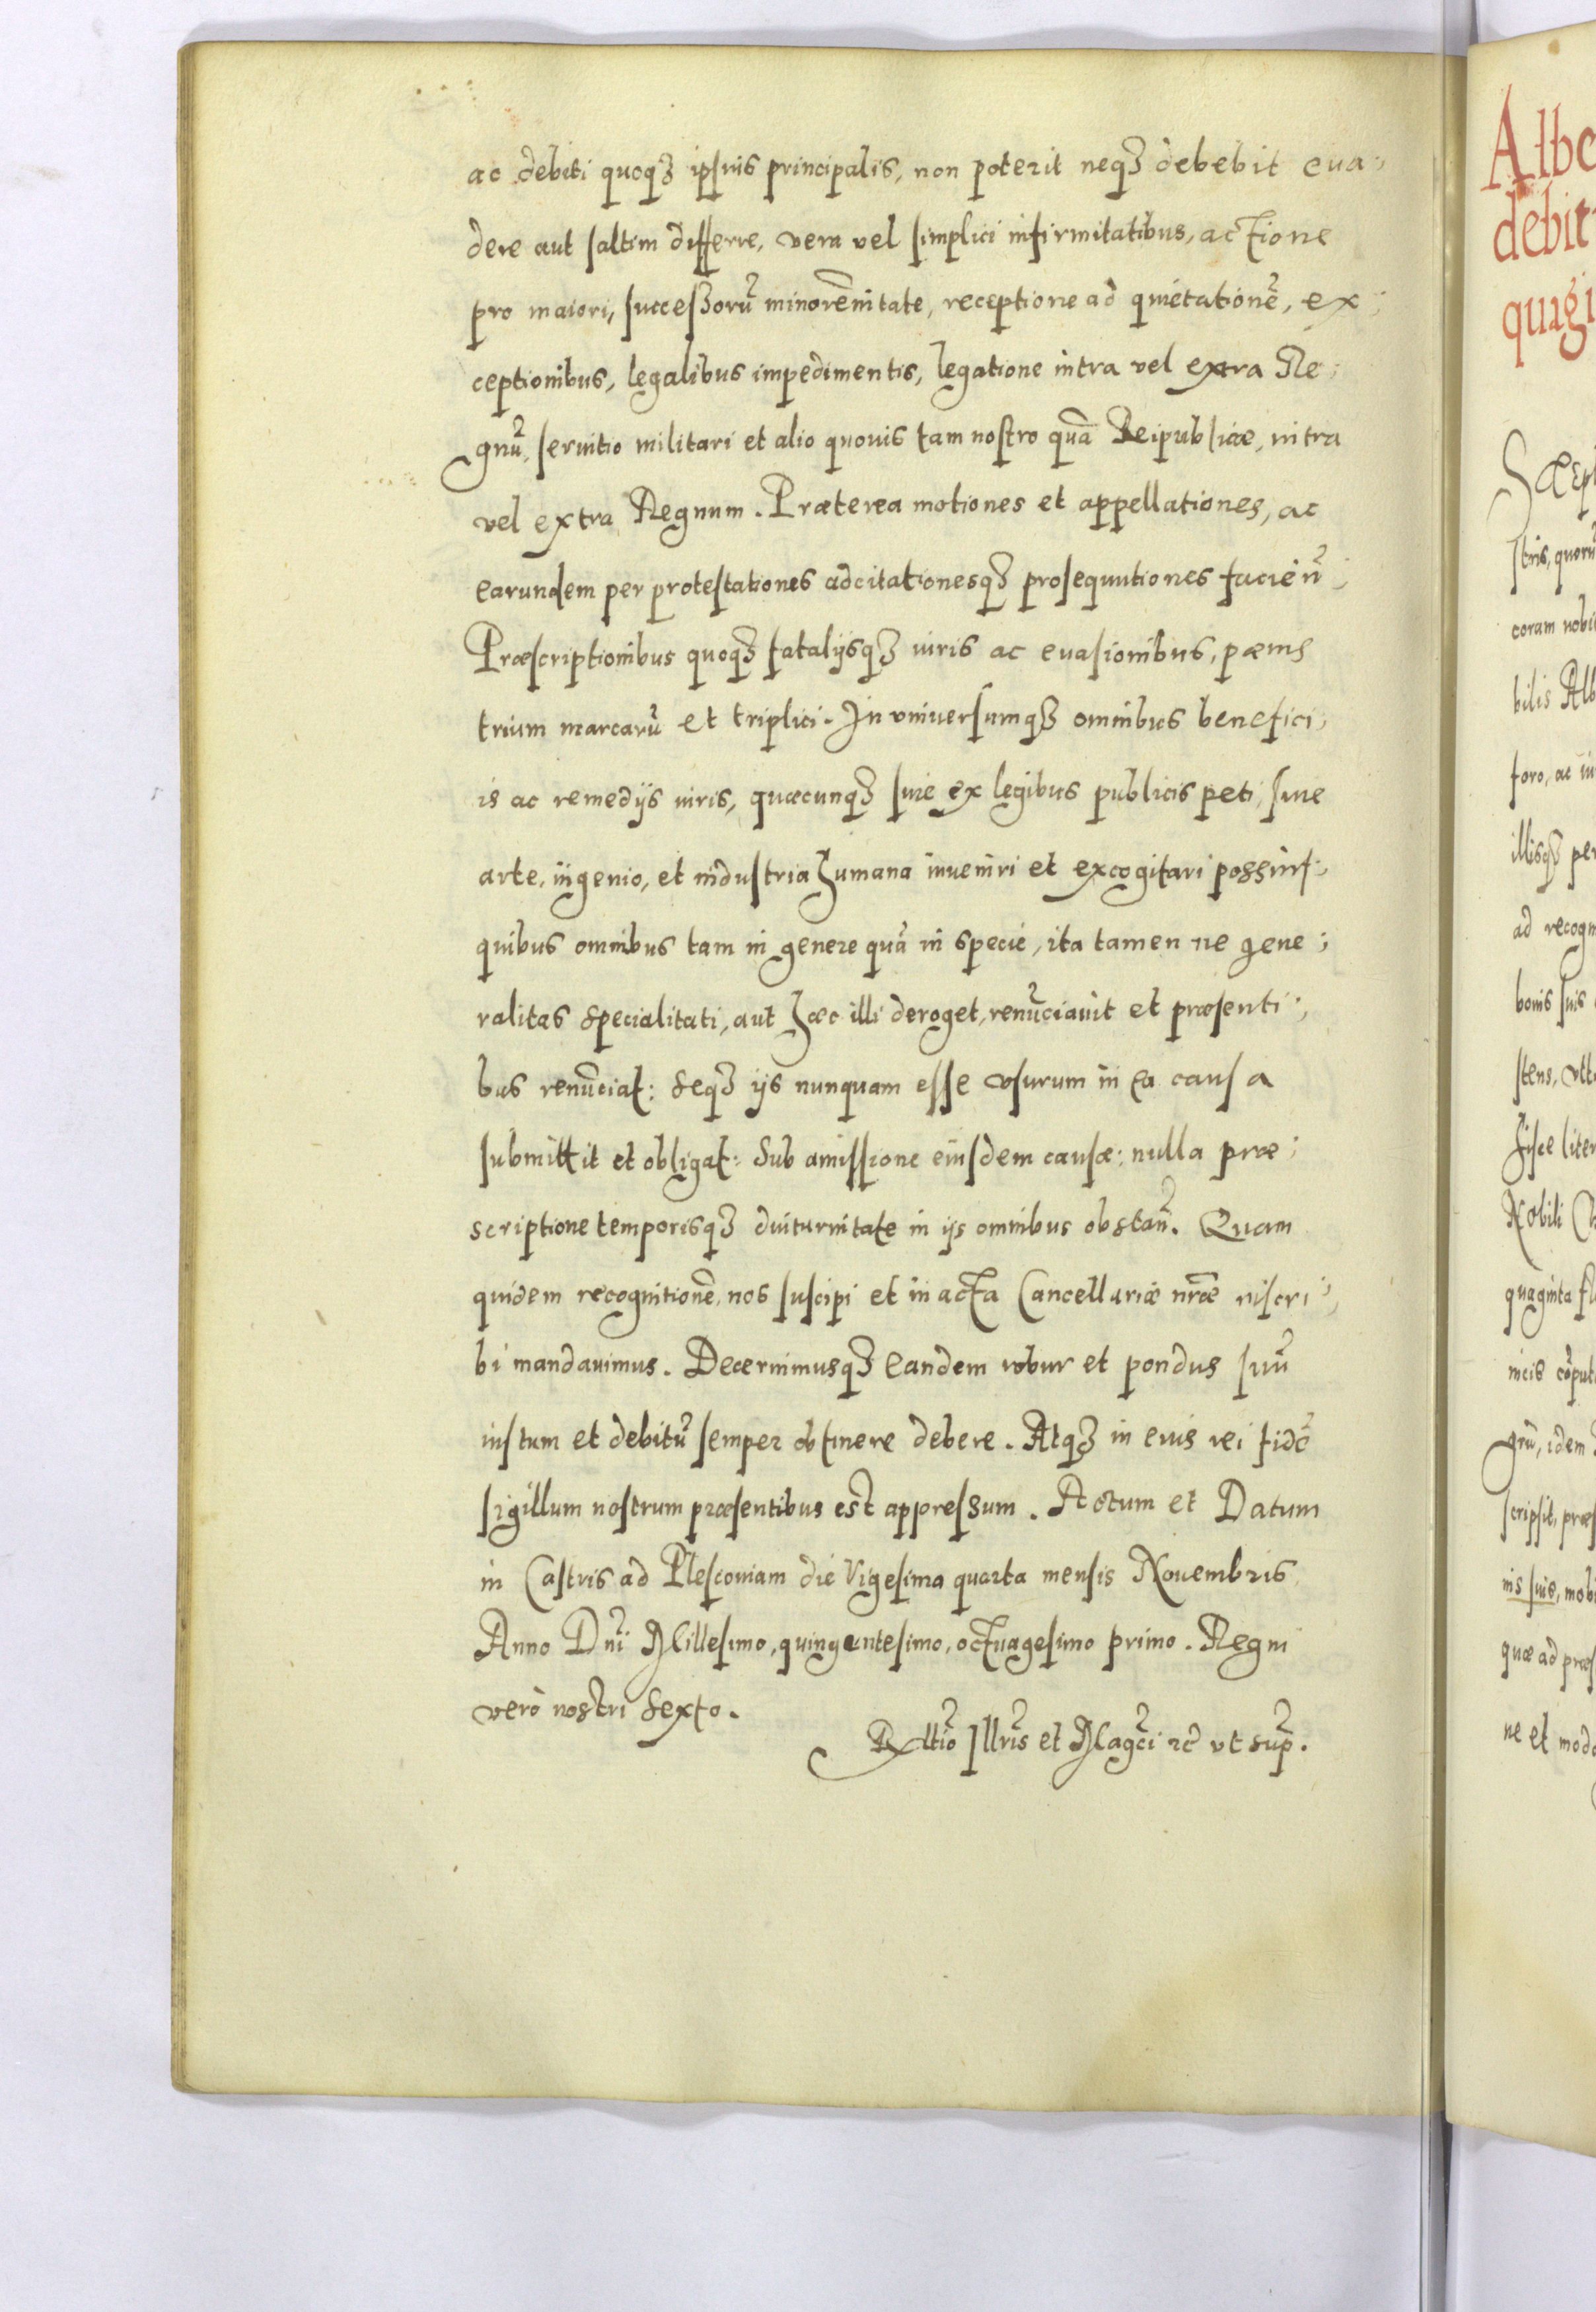 ac debiti quoqꝫ ipsius principalis, non poterit neqꝫ debebit eua;
dere aut saltim differre, vera vel simplici infirmitatibus, actione
pro maiori, successorũ minorẽnitate, receptione ad quietationẽ, ex;
ceptionibus, legalibus impedimentis, legatione intra vel extra Re;
gnũ, seruitio militari et alio quouis tam nostro quã Reipublicæ, intra
vel extra Regnum. Præterea motiones et appellationes, ac
earundem per protestationes adcitationesqꝫ prosequutiones facień;
Præscriptionibus quoqꝫ fatalijsqꝫ iuris ac euasionibus, pænis
trium marcarũ et triplici. In vniuersumqꝫ omnibus benefici;
is ac remedijs iuris, quæcunqꝫ siue ex legibus publicis peti, siue
arte, ingenio, et industria humana inueniri et excogitari possint;
quibus omnibus tam in genere quã in specie, ita tamen ne gene;
ralitas specialitati, aut hæc illi deroget, renũciauit et præsenti;
bus renũciat: seqꝫ ijs nunquam esse vsurum in ea causa
submittit et obligat: sub amissione eiusdem causæ: nulla præ;
scriptione temporisqꝫ diuturnitate in ijs omnibus obstañ. Quam
quidem recognitionẽ, nos suscipi et in acta Cancellariæ nr̃æ inscri;
bi mandauimus. Decernimusqꝫ eandem robur et pondus suũ
iustum et debitũ semper obtinere debere. Atqꝫ in euis rei fidẽ
sigillum nostrum præsentibus est appressum. Actum et Datum
in Castris ad Plesconiam die Vigesima quarta mensis Nouembris
Anno Dñi Millesimo, quingentesimo, octuagesimo primo. Regni
verò nostri sexto.
Rxltĩo Illr̃is et Magc̃i ꝛc̃ vt sup̃.
Albe
debit
quagi
stris, quorũ
coram nobi
bilis Alb
foro, ac iu
illisqꝫ per
ad recogn
bonis suis
stens, vtt
hisce liter
Nobili
quaginta fl
nicis cõput
gnũ, idem
scripsit, præs
nis suis, mobi
quæ ad præs
ne et modo